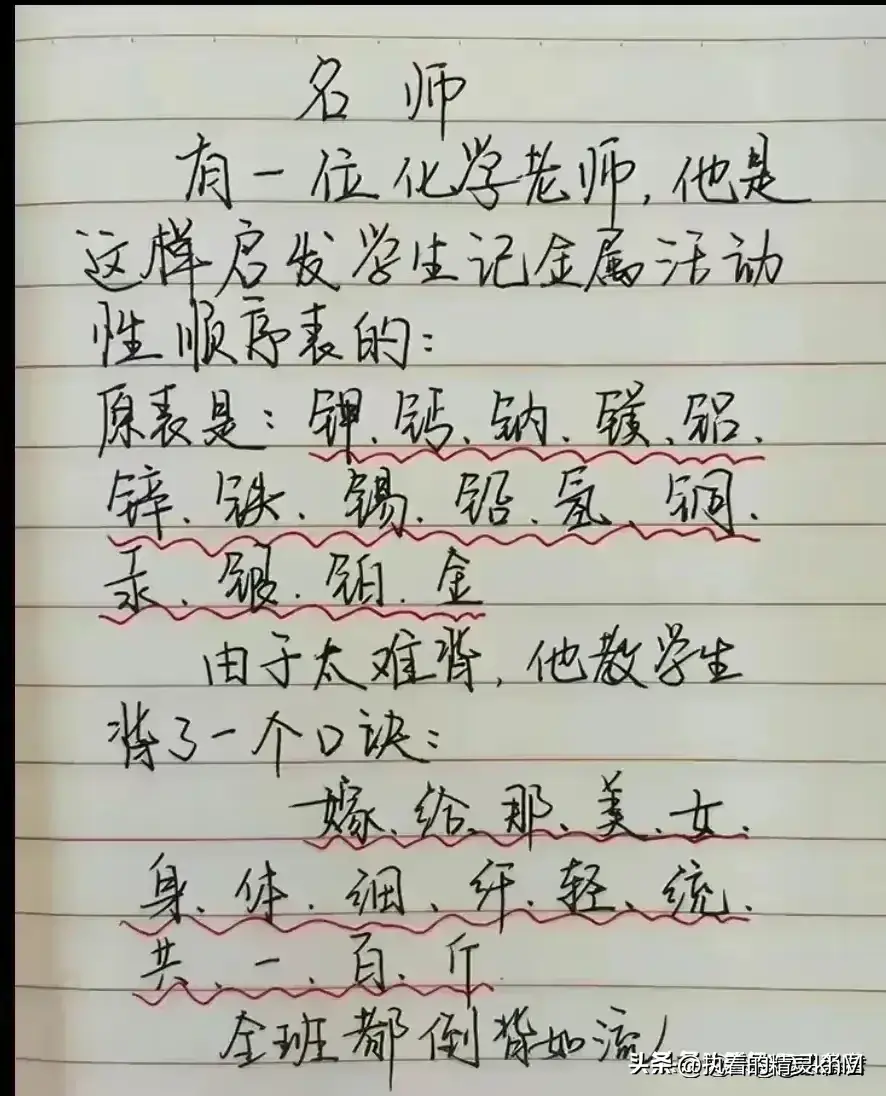 名师
有一位化学老师，他是
这样启发学生记金属活动
性顺序表的：
原表是：钾、钙、钠、镁、铝、
锌、铁、锡、铅、氢、铜、
汞、银、铂、金
由于太难背，他教学生
背了一个口诀：
嫁、给、那、美、女、
身、体、细、纤、轻、统、
共、一、百、斤
全班都倒背如流！
头条@执着的精灵